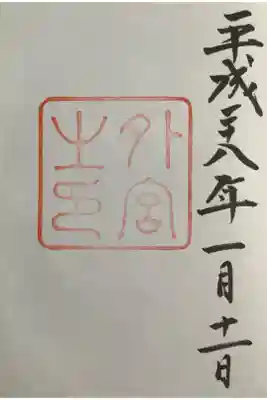 平成二十八年一月十一日
外宮
之印